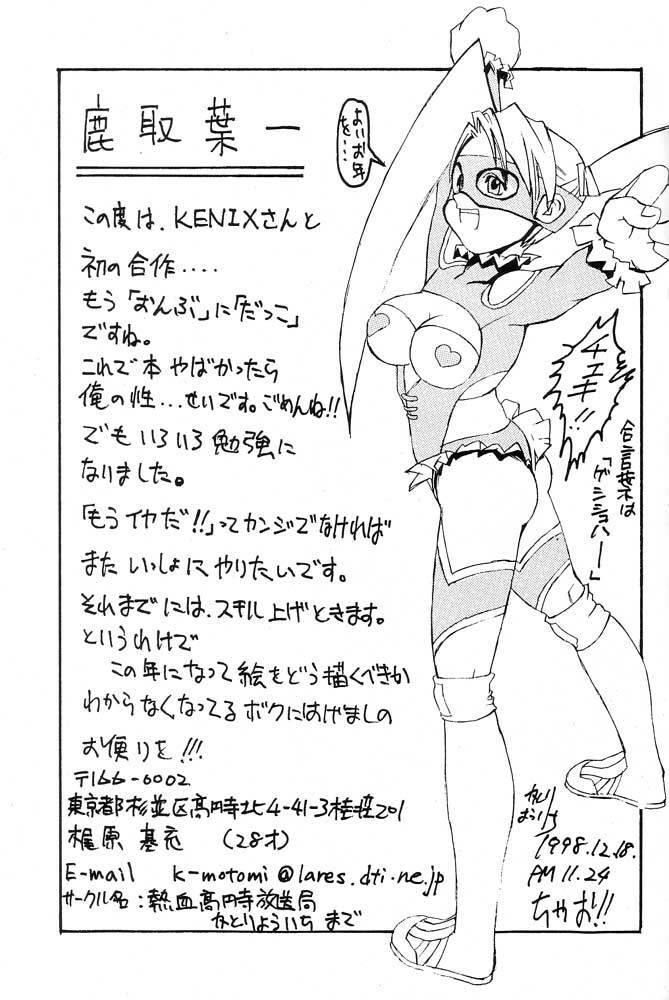 鹿取葉一
この度は、KENIXさんと
初の合作....
もう「おんぶ」に「だっこ」
ですね。
これで本 やばかったら
俺の性...せいです。ごめんね!!
でも いろいろ 勉強に
なりました。
「もうイヤだ!!」ってカンジでなければ
また いっしょに やりたいです。
それまでには、スキル上げときます。
というわけで
この年になって 絵をどう描くべきか
わからなくなってる ボクにはげましの
お便りを!!!
〒166-0002
東京都杉並区高円寺北4-41-3桂荘201
梶原 基充 (28才)
E-mail k-motomi@lares.dti.ne.jp
サークル名:熱血高円寺放送局
かとりよういち まで
よいお年
を...
チェキ!!
合言葉は
「ゲンショハー」
1998.12.18.
PM 11.24
ちゃお!!!